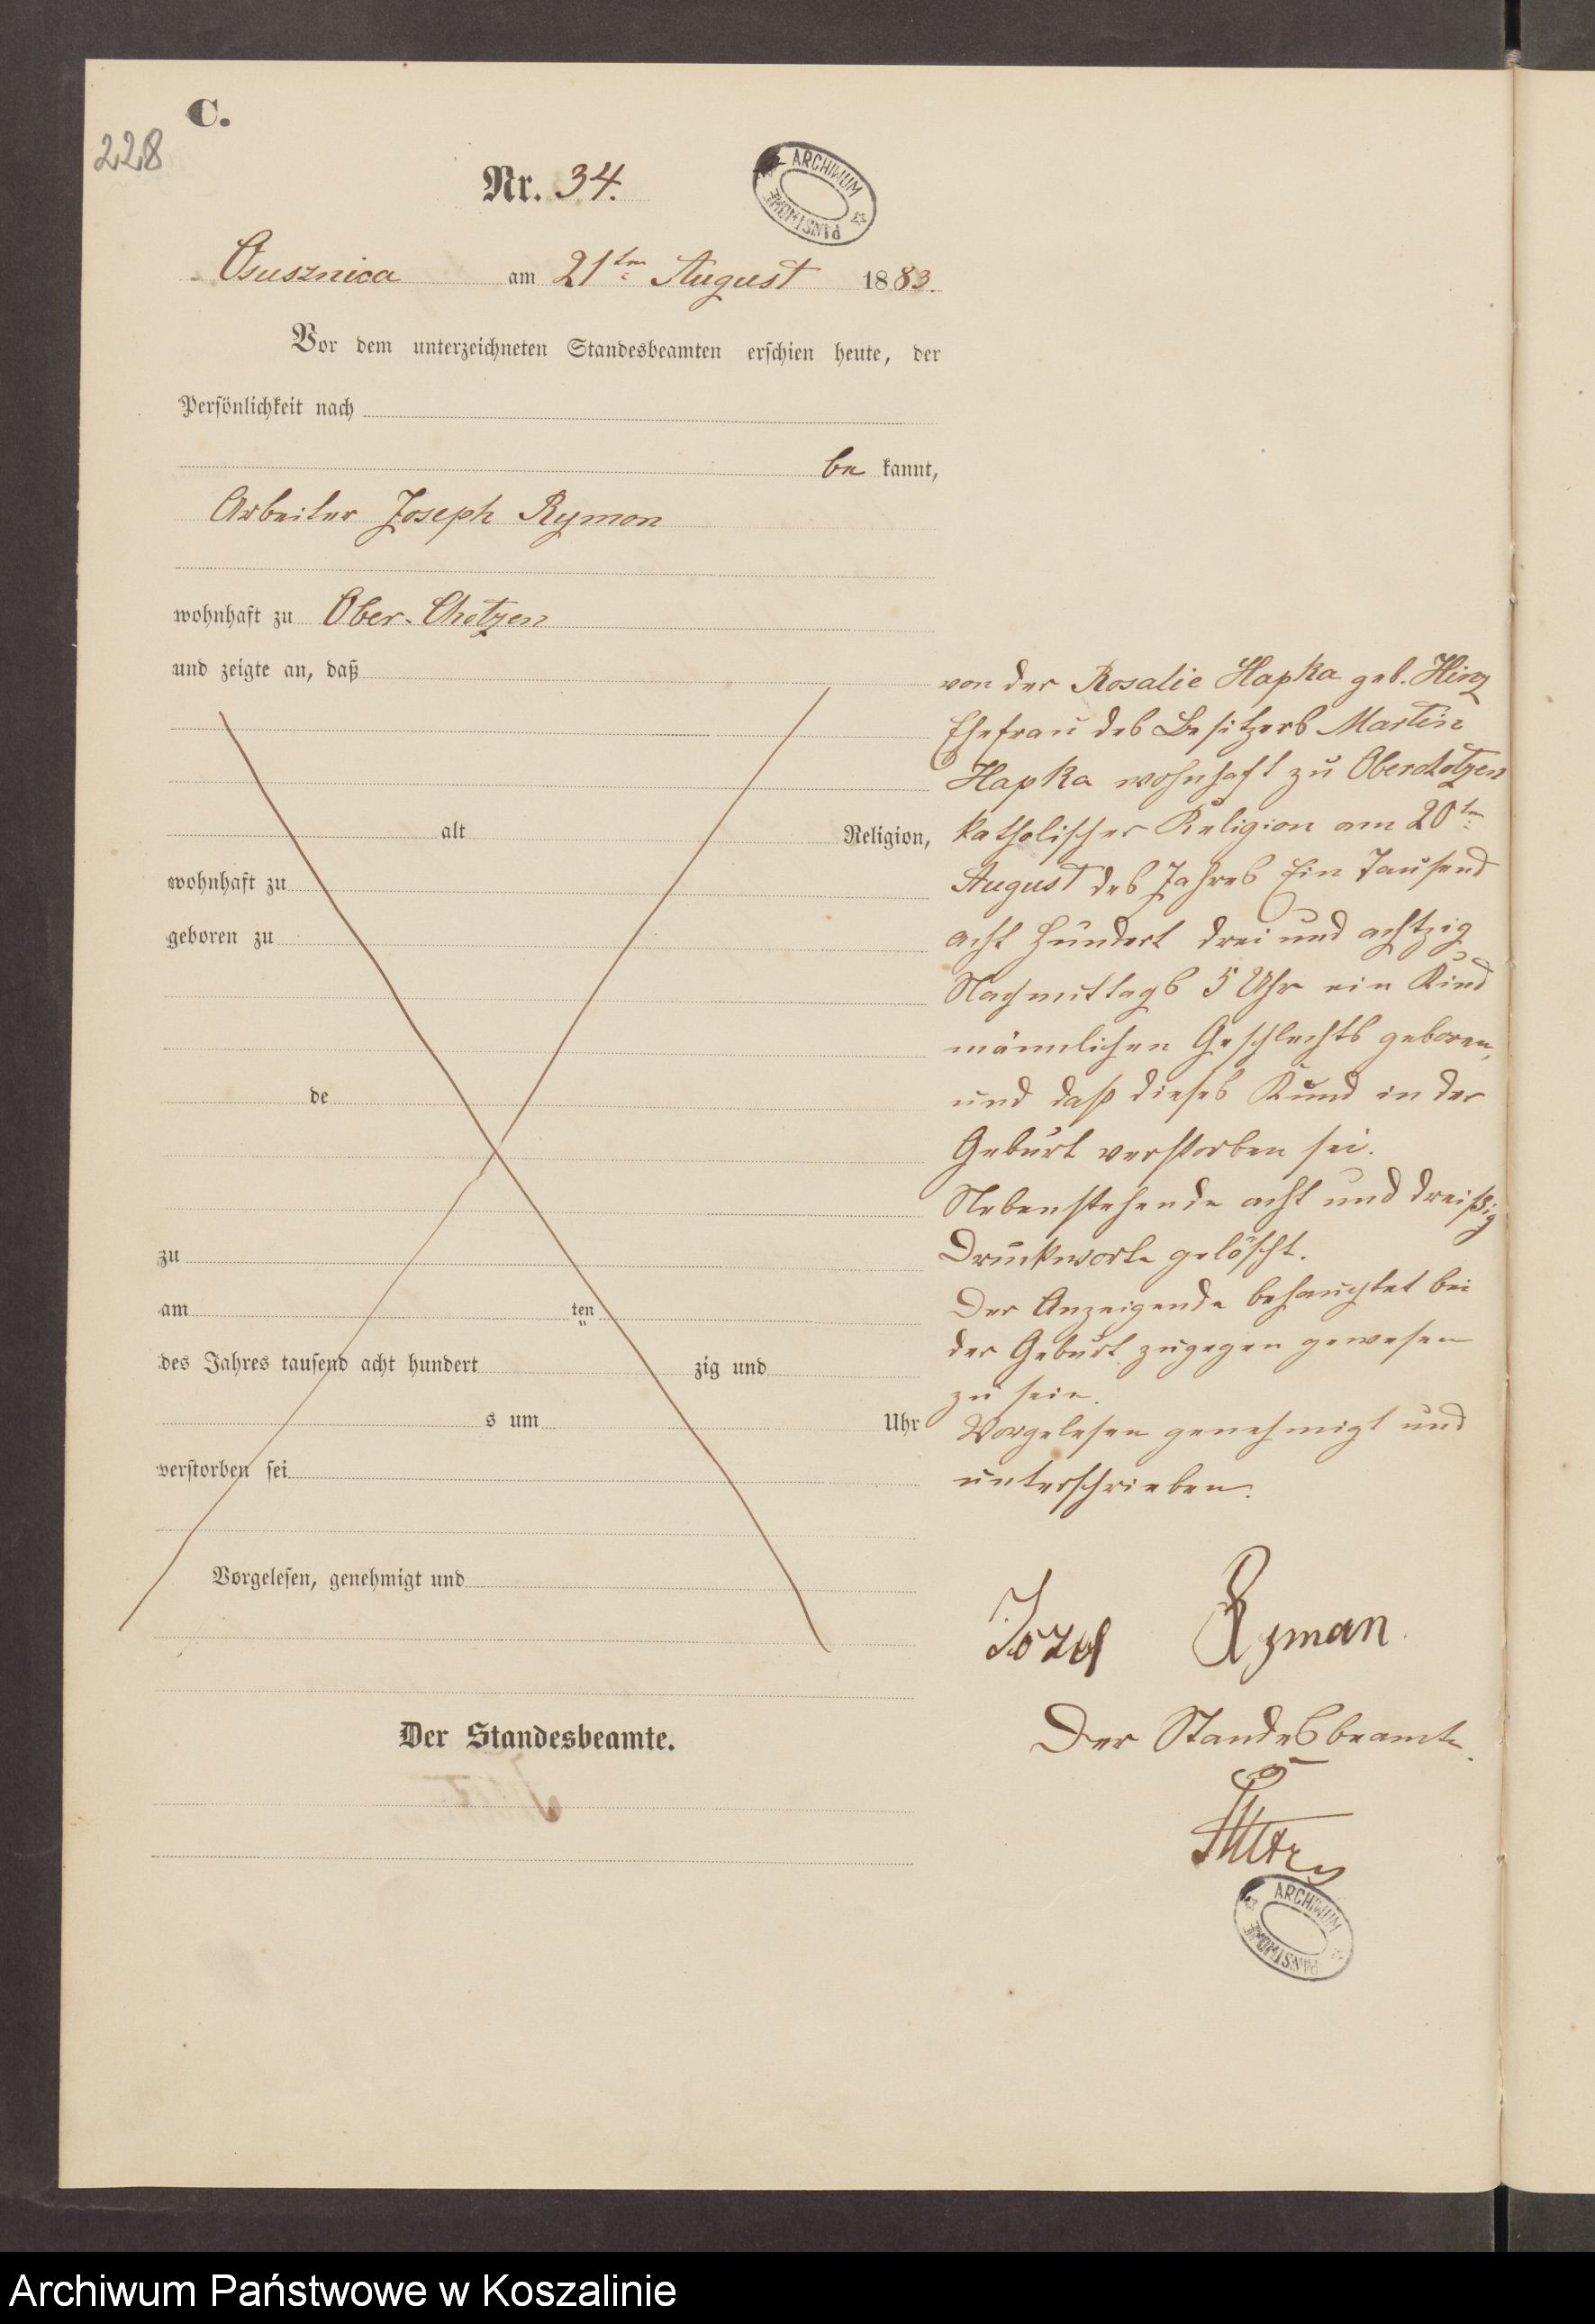 C.
228
Nr. 34.
ARCHIWUM PAŃSTWOWE
Osusznica am 21ten August 1883.
Vor dem unterzeichneten Standesbeamten erschien heute, der
Persönlichkeit nach
be kannt,
Arbeiter Joseph Rymon
wohnhaft zu Ober-Chotzen
und zeigte an, daß
alt Religion,
wohnhaft zu
geboren zu
de
zu
am ten
des Jahres tausend acht hundert zig und
s um Uhr
verstorben sei
Vorgelesen, genehmigt und
Der Standesbeamte.
von der Rosalie Hapka geb. Hinz
Ehefrau des Besitzers Martin
Hapka wohnhaft zu Oberchotzen
katholischer Religion am 20ten
August des Jahres Ein Tausend
acht hundert drei und achtzig
Nachmittags 5 Uhr ein Kind
männlichen Geschlechts geboren,
und daß dieses Kind in der
Geburt verstorben sei.
Nebenstehende acht und dreißig
Druckworte gelöscht.
Der Anzeigende behauptet bei
der Geburt zugegen gewesen
zu sein.
Vorgelesen genehmigt und
unterschrieben.
Józef Ryman.
Der Standesbeamte.
ARCHIWUM PAŃSTWOWE
Archiwum Państwowe w Koszalinie